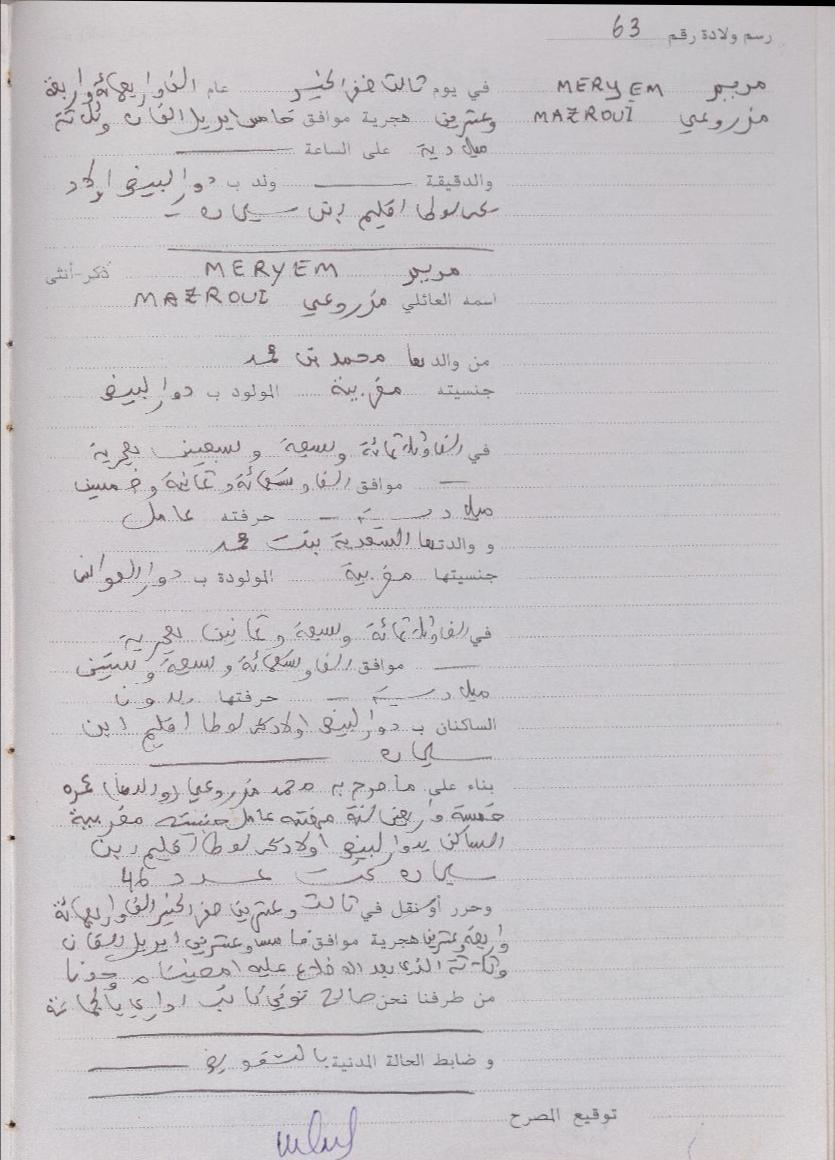 رسم ولادة رقم 63
مريم MERYEM
مزروعي MAZROUI
في يوم ثالث صفر الخير عام ألف وأربعمائة وأربعة
وعشرين هجرية موافق خامس ابريل ألفان وثلاثة
ميلادية على الساعة
والدقيقة ولد ب دوار لبيض اولاد
اقليم ابن سليمان
مريم MERYEM ذكر-أنثى
اسمه العائلي مزروعي MAZROUI
من والدها محمد بن محمد
جنسيته مغربية المولود ب دوار لبيض
في ألف وثلاثمائة وسبعة وسبعين هجرية
موافق ألف وتسعمائة وثمانية وخمسين
ميلادية حرفته عامل
و والدتها السعدية بنت محمد
جنسيتها مغربية المولودة ب دوار
في ألف وثلاثمائة وسبعة وثمانين هجرية
موافق ألف وتسعمائة وسبعة وستين
ميلادية حرفتها بدون
الساكنان ب دوار لبيض اولاد اقليم ابن
سليمان
بناء على ما صرح به محمد مزروعي (والدها) عمره
خمسة وأربعين سنة مهنته عامل جنسيته مغربية
الساكن بدوار لبيض اولاد اقليم ابن
سليمان تحت عدد 46
وحرر أو نقل في ثالث وعشرين صفر الخير ألف وأربعمائة
وأربعة وعشرين هجرية موافق خامس وعشرين ابريل ألفان
وثلاثة الذي بعد الاطلاع عليه امضيناه
من طرفنا نحن صالح كاتب اداري بالجماعة
و ضابط الحالة المدنية بالتفويض
توقيع المصرح